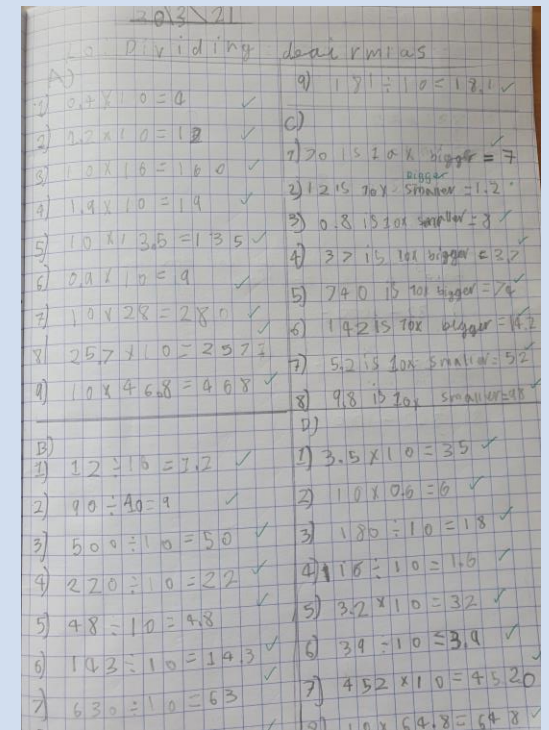 20\3\21
LO Dividing deairmias
A)
1) 0.4x10=4
2) 1.2x10=12
3) 10x16=160
4) 1.9x10=19
5) 10x13.5=135
6) 0.9x10=9
7) 10x28=280
8) 25.7x10=257
9) 10x46.8=468
B)
1) 12÷10=1.2
2) 90÷10=9
3) 500÷10=50
4) 220÷10=22
5) 48÷10=4.8
6) 143÷10=14.3
7) 630÷10=63
9) 181÷10=18.1
C)
1) 70 is 10x bigger = 7
bigger
2) 12 is 10x smaller = 1.2
3) 0.8 is 10x smaller = 8
4) 37 is 10x bigger = 3.7
5) 740 is 10x bigger = 74
6) 142 is 10x bigger = 14.2
7) 5.2 is 10x smaller = 52
8) 9.8 is 10x smaller = 98
D)
1) 3.5x10=35
2) 10x0.6=6
3) 180÷10=18
4) 16÷10=1.6
5) 3.2x10=32
6) 39÷10=3.9
7) 452x10=4520
8) 10x64.8=648